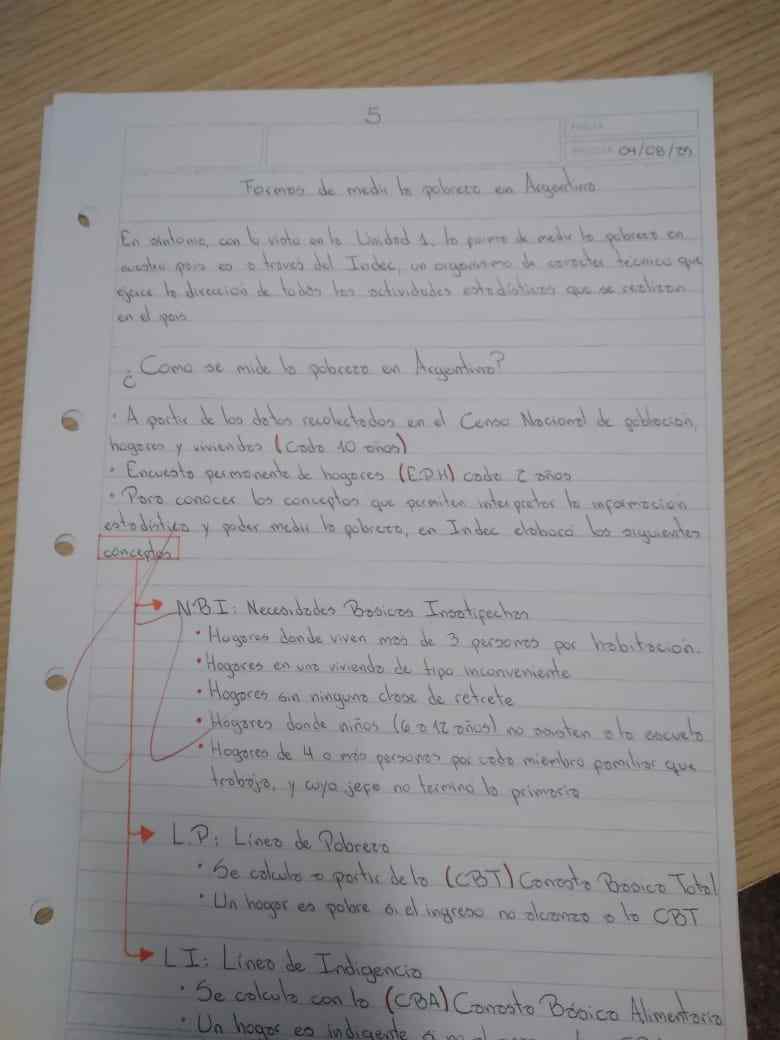 5
04/08/25
Formas de medir la pobreza en Argentina
En sintonia, con lo visto en la Unidad 1, la forma de medir la pobreza en
nuestro pais es a traves del Indec, un organismo de caracter tecnico que
ejerce la direccion de todas las actividades estadisticas que se realizan
en el pais
¿Como se mide la pobreza en Argentina?
· A partir de los datos recolectados en el Censo Nacional de poblacion,
hogares y viviendas (Cada 10 años)
· Encuesta permanente de hogares (EPH) cada 2 años
· Para conocer los conceptos que permiten interpretar la informacion
estadistica y poder medir la pobreza, en Indec elaboró los siguientes
conceptos
N.B.I: Necesidades Basicas Insatisfechas
· Hogares donde viven mas de 3 personas por habitacion.
· Hogares en una vivienda de tipo inconveniente
· Hogares sin ninguna clase de retrete
· Hogares donde niños (6 a 12 años) no asisten a la escuela
· Hogares de 4 o más personas por cada miembro familiar que
trabaja, y cuyo jefe no termino la primaria
L.P: Linea de Pobreza
· Se calcula a partir de la (CBT) Canasta Básica Total
· Un hogar es pobre si el ingreso no alcanza a la CBT
L I: Linea de Indigencia
· Se calcula con la (CBA) Canasta Básica Alimentaria
· Un hogar es indigente si